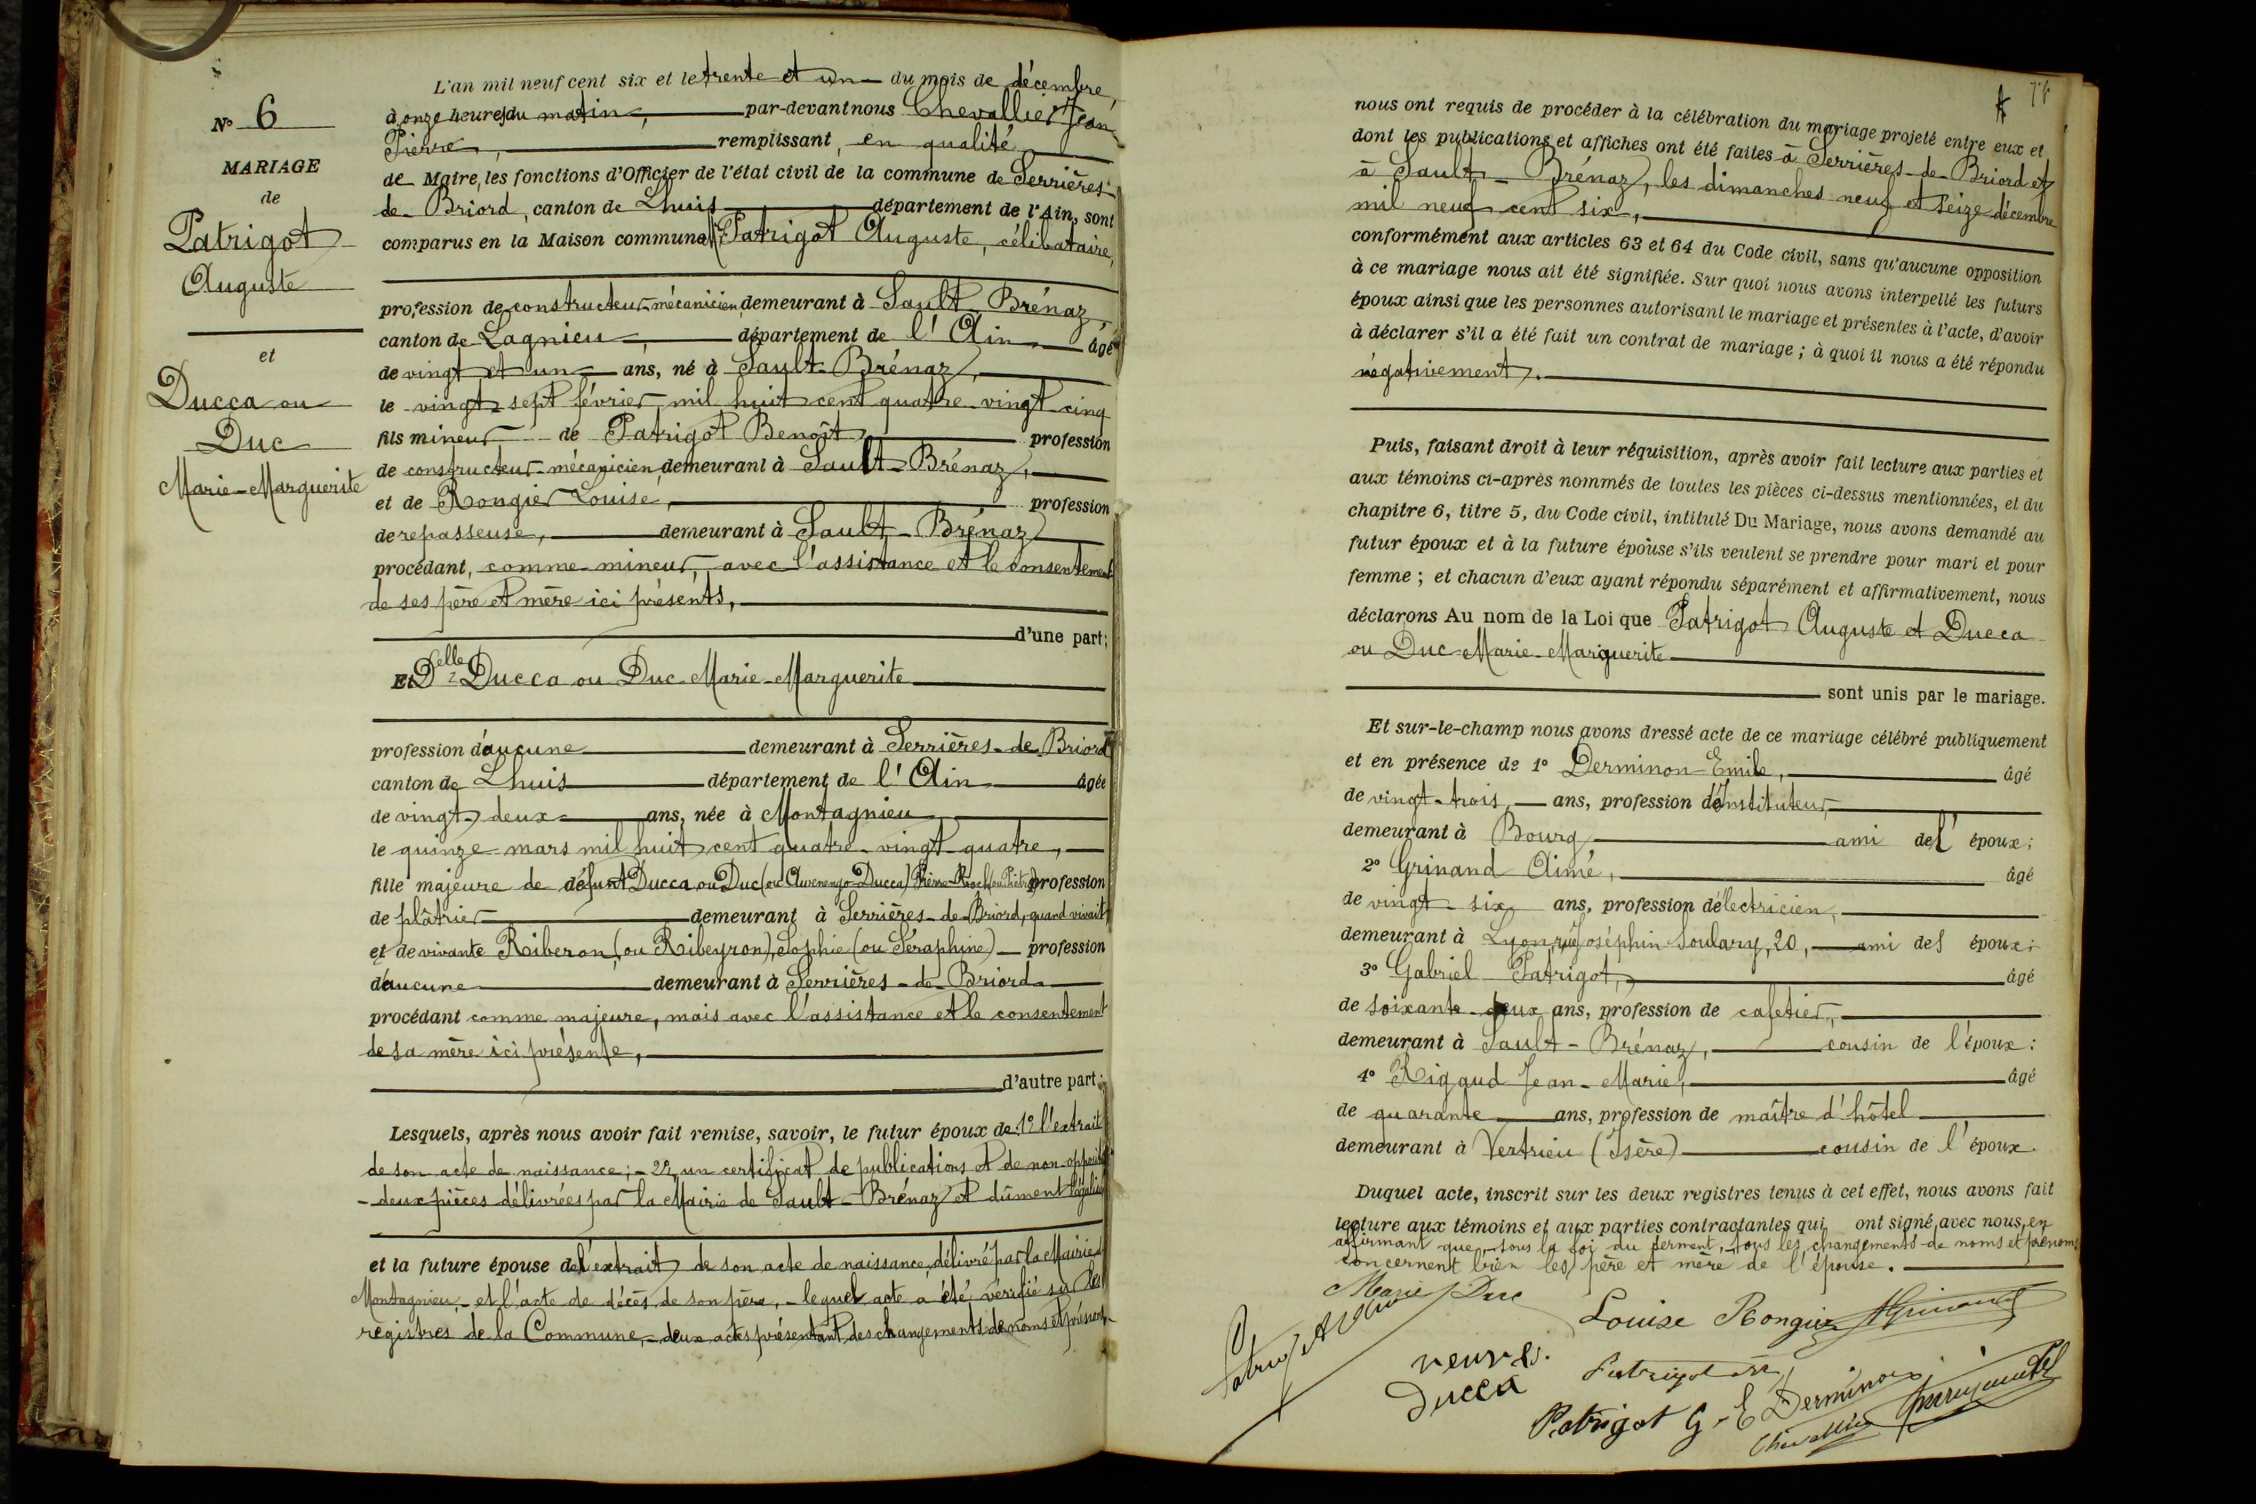 N° 6
MARIAGE
de
Patrigot
Auguste
et
Ducca ou
Duc
Marie-Marguerite
L'an mil neuf cent six et le trente et un du mois de décembre,
à onze heures du matin, par-devant nous Chevallier Jean
Pierre, remplissant, en qualité
de Maire, les fonctions d'Officier de l'état civil de la commune de Serrières-
de-Briord, canton de Lhuis département de l'Ain, sont
comparus en la Maison commune Patrigot Auguste, célibataire,
profession de constructeur-mécanicien, demeurant à Sault-Brénaz,
canton de Lagnieu, département de l'Ain, âgé
de vingt et un ans, né à Sault-Brénaz,
le vingt-sept février mil huit cent quatre-vingt-cinq
fils mineur de Patrigot Benoît, profession
de constructeur-mécanicien, demeurant à Sault-Brénaz,
et de Rongier Louise, profession
de repasseuse, demeurant à Sault-Brénaz
procédant, comme mineur, avec l'assistance et le consentement
de ses père et mère ici présents,
d'une part;
Et Delle Ducca ou Duc Marie-Marguerite
profession d'aucune demeurant à Serrières-de-Briord
canton de Lhuis département de l'Ain âgée
de vingt-deux ans, née à Montagnieu
le quinze mars mil huit cent quatre-vingt-quatre,
fille majeure de défunt Ducca ou Duc (ou Avenengo-Ducca) Pierre-Roch (ou Piétro) profession
de plâtrier demeurant à Serrières-de-Briord, quand vivait
et de vivante Riberon (ou Ribeyron), Sophie (ou Séraphine) profession
d'aucune demeurant à Serrières-de-Briord
procédant comme majeure, mais avec l'assistance et le consentement
de sa mère ici présente,
d'autre part;
Lesquels, après nous avoir fait remise, savoir, le futur époux de 1° l'extrait
de son acte de naissance; - 2°, un certificat de publications et de non-opposit
- deux pièces délivrées par la Mairie de Sault-Brénaz et dûment légalisées
et la future épouse de l'extrait de son acte de naissance, délivré par la Mairie de
Montagnieu, - et l'acte de décès de son père, - lequel acte a été vérifié sur les
registres de la Commune, - deux actes présentant des changements de noms et prénoms,
nous ont requis de procéder à la célébration du mariage projeté entre eux et
dont les publications et affiches ont été faites à Serrières-de-Briord et
à Sault-Brénaz, les dimanches neuf et seize décembre
mil neuf cent six,
conformément aux articles 63 et 64 du Code civil, sans qu'aucune opposition
à ce mariage nous ait été signifiée. Sur quoi nous avons interpellé les futurs
époux ainsi que les personnes autorisant le mariage et présentes à l'acte, d'avoir
à déclarer s'il a été fait un contrat de mariage; à quoi il nous a été répondu
négativement.
Puis, faisant droit à leur réquisition, après avoir fait lecture aux parties et
aux témoins ci-après nommés de toutes les pièces ci-dessus mentionnées, et du
chapitre 6, titre 5, du Code civil, intitulé Du Mariage, nous avons demandé au
futur époux et à la future épouse s'ils veulent se prendre pour mari et pour
femme; et chacun d'eux ayant répondu séparément et affirmativement, nous
déclarons Au nom de la Loi que Patrigot Auguste et Ducca
ou Duc Marie-Marguerite
sont unis par le mariage.
Et sur-le-champ nous avons dressé acte de ce mariage célébré publiquement
et en présence de 1° Derminon Emile, âgé
de vingt-trois ans, profession d'Instituteur,
demeurant à Bourg ami de l'époux;
2° Grinand Aimé, âgé
de vingt-six ans, profession d'électricien,
demeurant à Lyon, rue Joséphin Soulary, 20, ami des époux;
3° Gabriel Patrigot, âgé
de soixante-deux ans, profession de cafetier,
demeurant à Sault-Brénaz, cousin de l'époux:
4° Rigaud Jean-Marie, âgé
de quarante ans, profession de maître d'hôtel
demeurant à Vertrieu (Isère) cousin de l'époux.
Duquel acte, inscrit sur les deux registres tenus à cet effet, nous avons fait
lecture aux témoins et aux parties contractantes qui ont signé, avec nous, en
affirmant que, sous la foi du serment, tous les changements de noms et prénoms
concernent bien les père et mère de l'épouse.
Marie Duc
Louise Rongier AGrinand
Patrigot
veuve
Ducca
Patrigot
Patrigot G. E Derminon
Chevallier